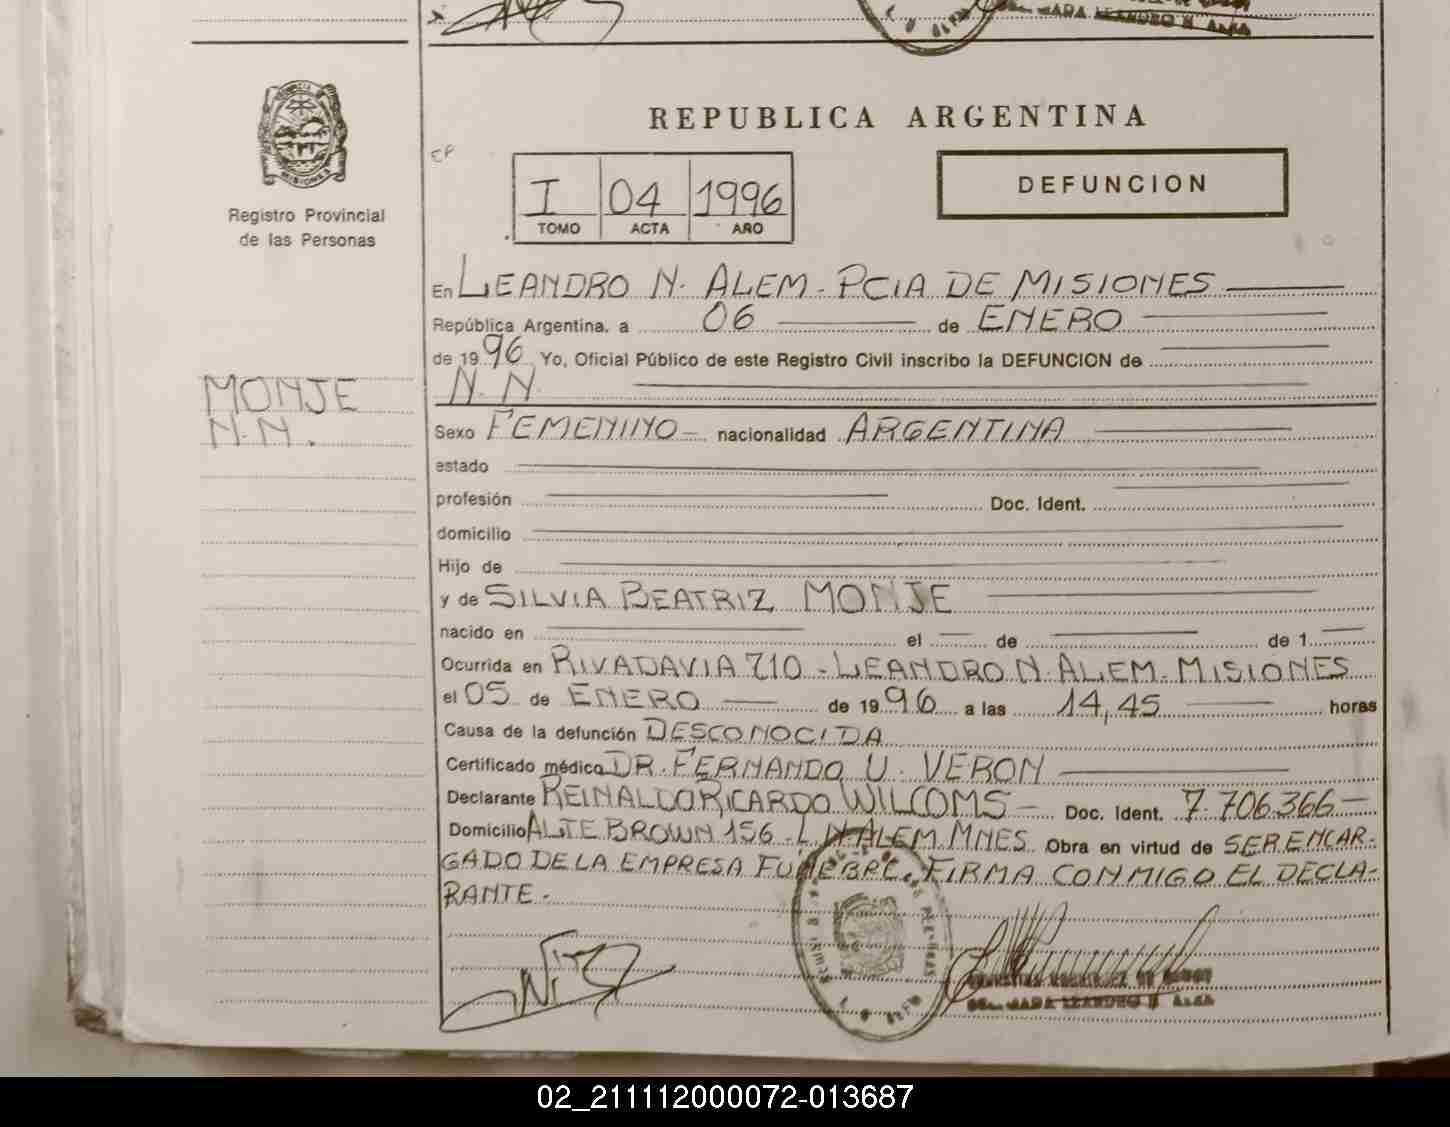 REPUBLICA ARGENTINA
MISIONES
Registro Provincial
de las Personas
CP
I 04 1996
TOMO ACTA AÑO
DEFUNCION
En LEANDRO N. ALEM - PCIA DE MISIONES
República Argentina, a 06 de ENERO
de 1996 Yo, Oficial Público de este Registro Civil inscribo la DEFUNCION de
N.N
MONJE
N.N.
Sexo FEMENINO - nacionalidad ARGENTINA
estado
profesión Doc. Ident.
domicilio
Hijo de
y de SILVIA BEATRIZ MONJE
nacido en el de de 1
Ocurrida en RIVADAVIA 710 - LEANDRO N. ALEM - MISIONES
el 05 de ENERO de 1996 a las 14,45 horas
Causa de la defunción DESCONOCIDA
Certificado médico DR. FERNANDO U. VERON
Declarante REINALDO RICARDO WILCOMS - Doc. Ident. 7.706.366 -
Domicilio ALTE BROWN 156 - L.N. ALEM. MNES Obra en virtud de SER ENCAR-
GADO DE LA EMPRESA FUNEBRE. FIRMA CONMIGO EL DECLA-
RANTE -
LEANDRO N. ALEM
02_211112000072-013687